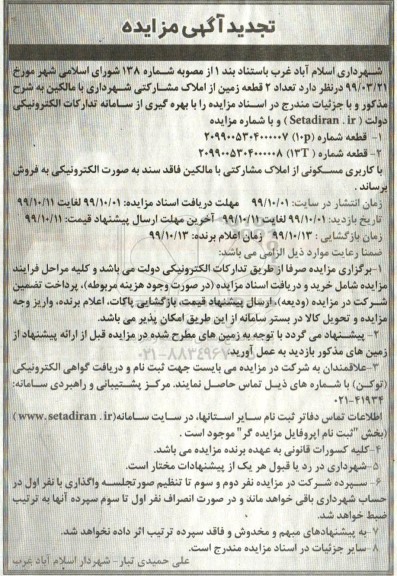 تجدید آگهی مزایده
شهرداری اسلام آباد غرب باستناد بند ۱ از مصوبه شماره ۱۳۸ شورای اسلامی شهر مورخ
۹۹/۰۳/۲۱ درنظر دارد تعداد ۲ قطعه زمین از املاک مشارکتی شهرداری با مالکین به شرح
مذکور و با جزئیات مندرج در اسناد مزایده را با بهره گیری از سامانه تدارکات الکترونیکی
دولت ( Setadiran . ir ) و با شماره مزایده
۱- قطعه شماره (۱۰p) ۲۰۹۹۰۰۵۳۰۴۰۰۰۰۰۷
۲- قطعه شماره ( ۱۳T) ۲۰۹۹۰۰۵۳۰۴۰۰۰۰۰۸
با کاربری مسکونی از املاک مشارکتی با مالکین فاقد سند به صورت الکترونیکی به فروش
برساند .
زمان انتشار در سایت: ۹۹/۱۰/۰۱ مهلت دریافت اسناد مزایده: ۹۹/۱۰/۰۱ لغایت ۹۹/۱۰/۱۱
تاریخ بازدید: ۹۹/۱۰/۰۱ لغایت ۹۹/۱۰/۱۱ آخرین مهلت ارسال پیشنهاد قیمت: ۹۹/۱۰/۱۱
زمان بازگشایی : ۹۹/۱۰/۱۳ زمان اعلام برنده: ۹۹/۱۰/۱۳
ضمنا رعایت موارد ذیل الزامی می باشد:
۱-برگزاری مزایده صرفا از طریق تدارکات الکترونیکی دولت می باشد و کلیه مراحل فرایند
مزایده شامل خرید و دریافت اسناد مزایده (در صورت وجود هزینه مربوطه)، پرداخت تضمین
شرکت در مزایده (ودیعه)، ارسال پیشنهاد قیمت، بازگشایی پاکات، اعلام برنده، واریز وجه
مزایده و تحویل کالا در بستر سامانه از این طریق امکان پذیر می باشد.
۲- پیشنهاد می گردد با توجه به زمین های مطرح شده در مزایده قبل از ارائه پیشنهاد از
زمین های مذکور بازدید به عمل آورید.
۳-علاقمندان به شرکت در مزایده می بایست جهت ثبت نام و دریافت گواهی الکترونیکی
(توکن) با شماره های ذیل تماس حاصل نمایند. مرکز پشتیبانی و راهبردی سامانه:
۰۲۱-۴۱۹۳۴
اطلاعات تماس دفاتر ثبت نام سایر استانها، در سایت سامانه(www.setadiran . ir )
(بخش "ثبت نام /پروفایل مزایده گر" موجود است .
۴-کلیه کسورات قانونی به عهده برنده مزایده می باشد.
۵-شهرداری در رد یا قبول هر یک از پیشنهادات مختار است.
۶- سپرده شرکت در مزایده نفر دوم و سوم تا تنظیم صورتجلسه واگذاری با نفر اول در
حساب شهرداری باقی خواهد ماند و در صورت انصراف نفر اول تا سوم سپرده آنها به ترتیب
ضبط خواهد شد.
۷- به پیشنهادهای مبهم و مخدوش و فاقد سپرده ترتیب اثر داده نخواهد شد.
۸-سایر جزئیات در اسناد مزایده مندرج است.
علی حمیدی تبار- شهردار اسلام آباد غرب